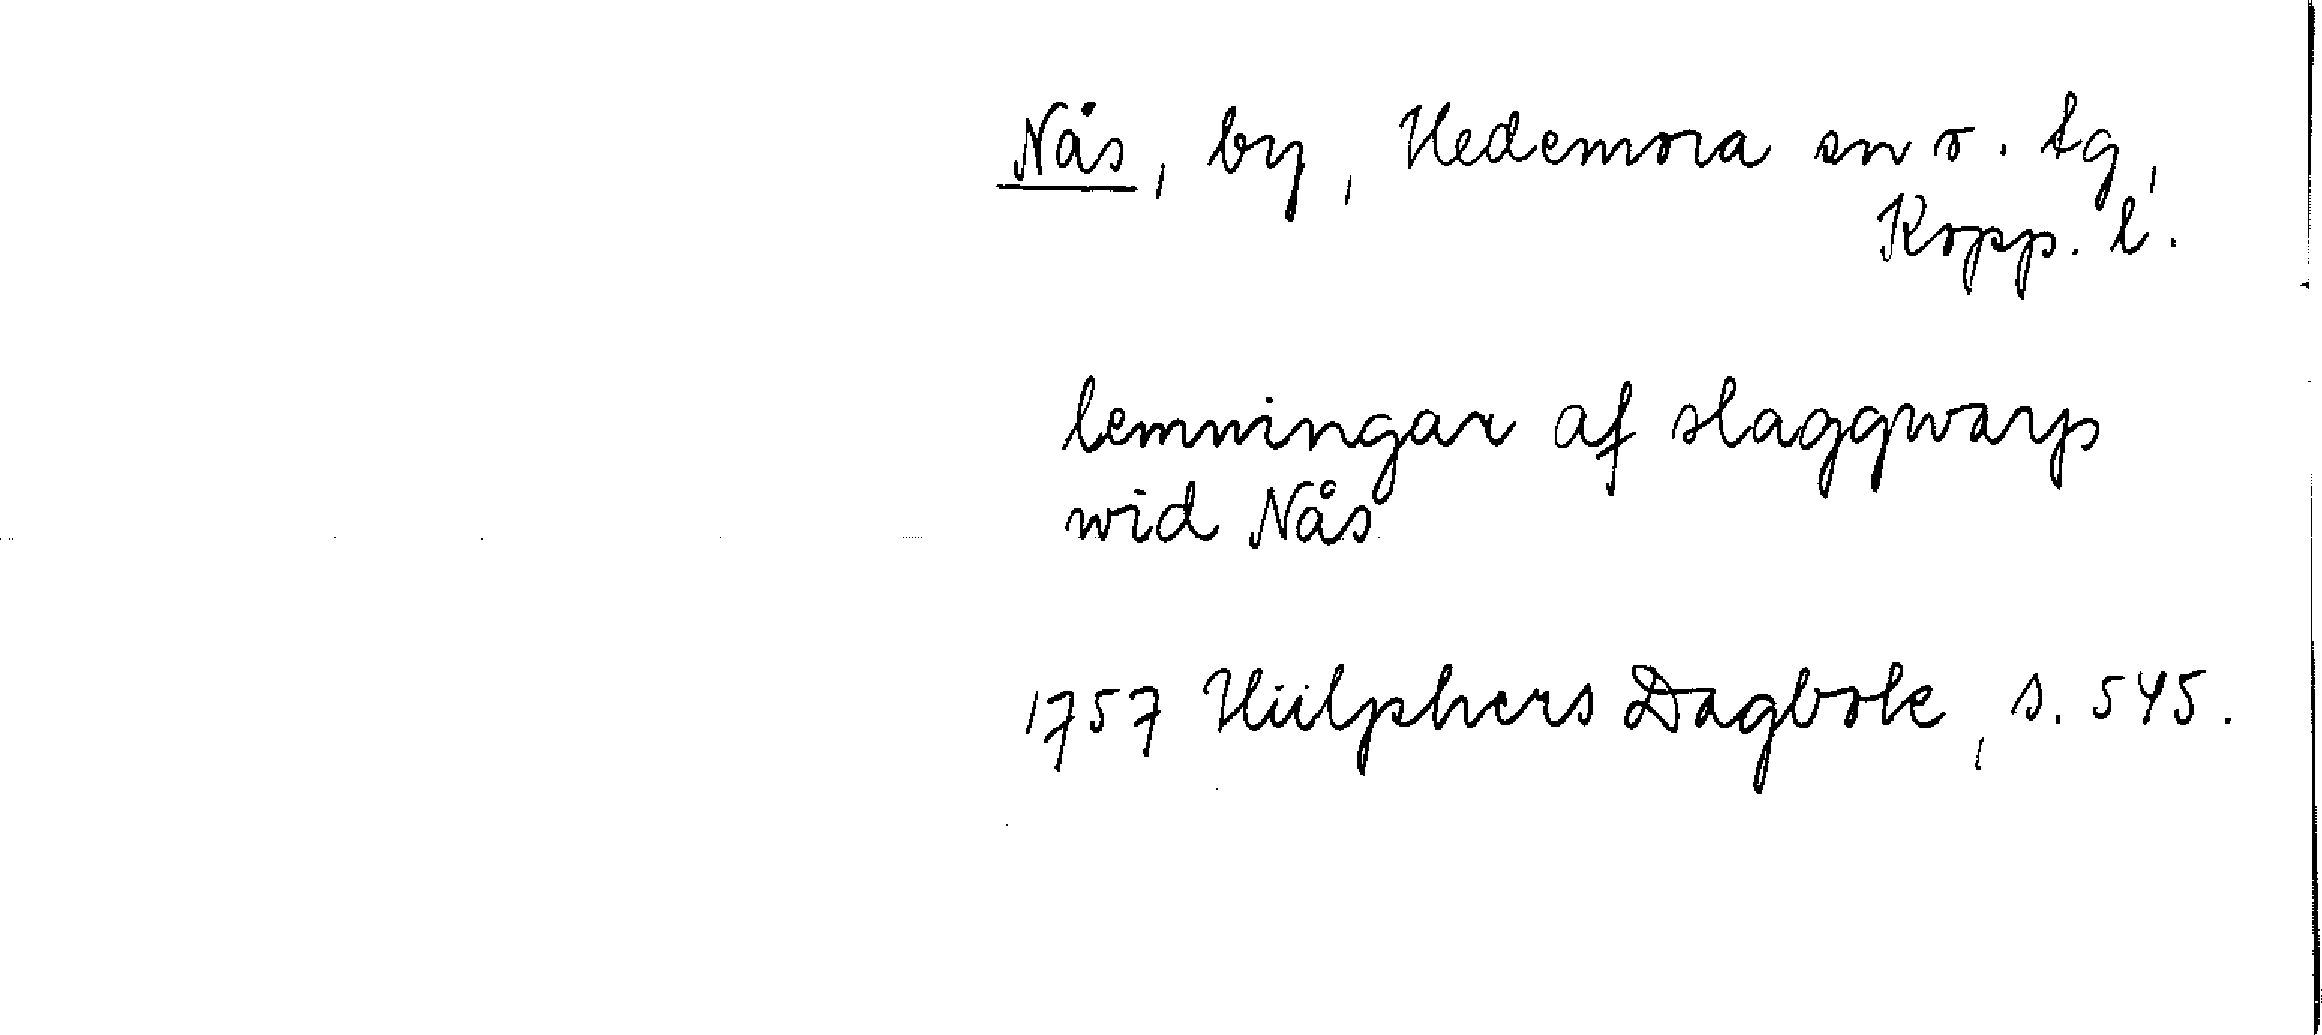 Nås, by, Hedemora sn o. tg,
Kopp. l.
lemningar af slaggwarp
wid Nås
1757 Hülphers Dagbok, s. 545.